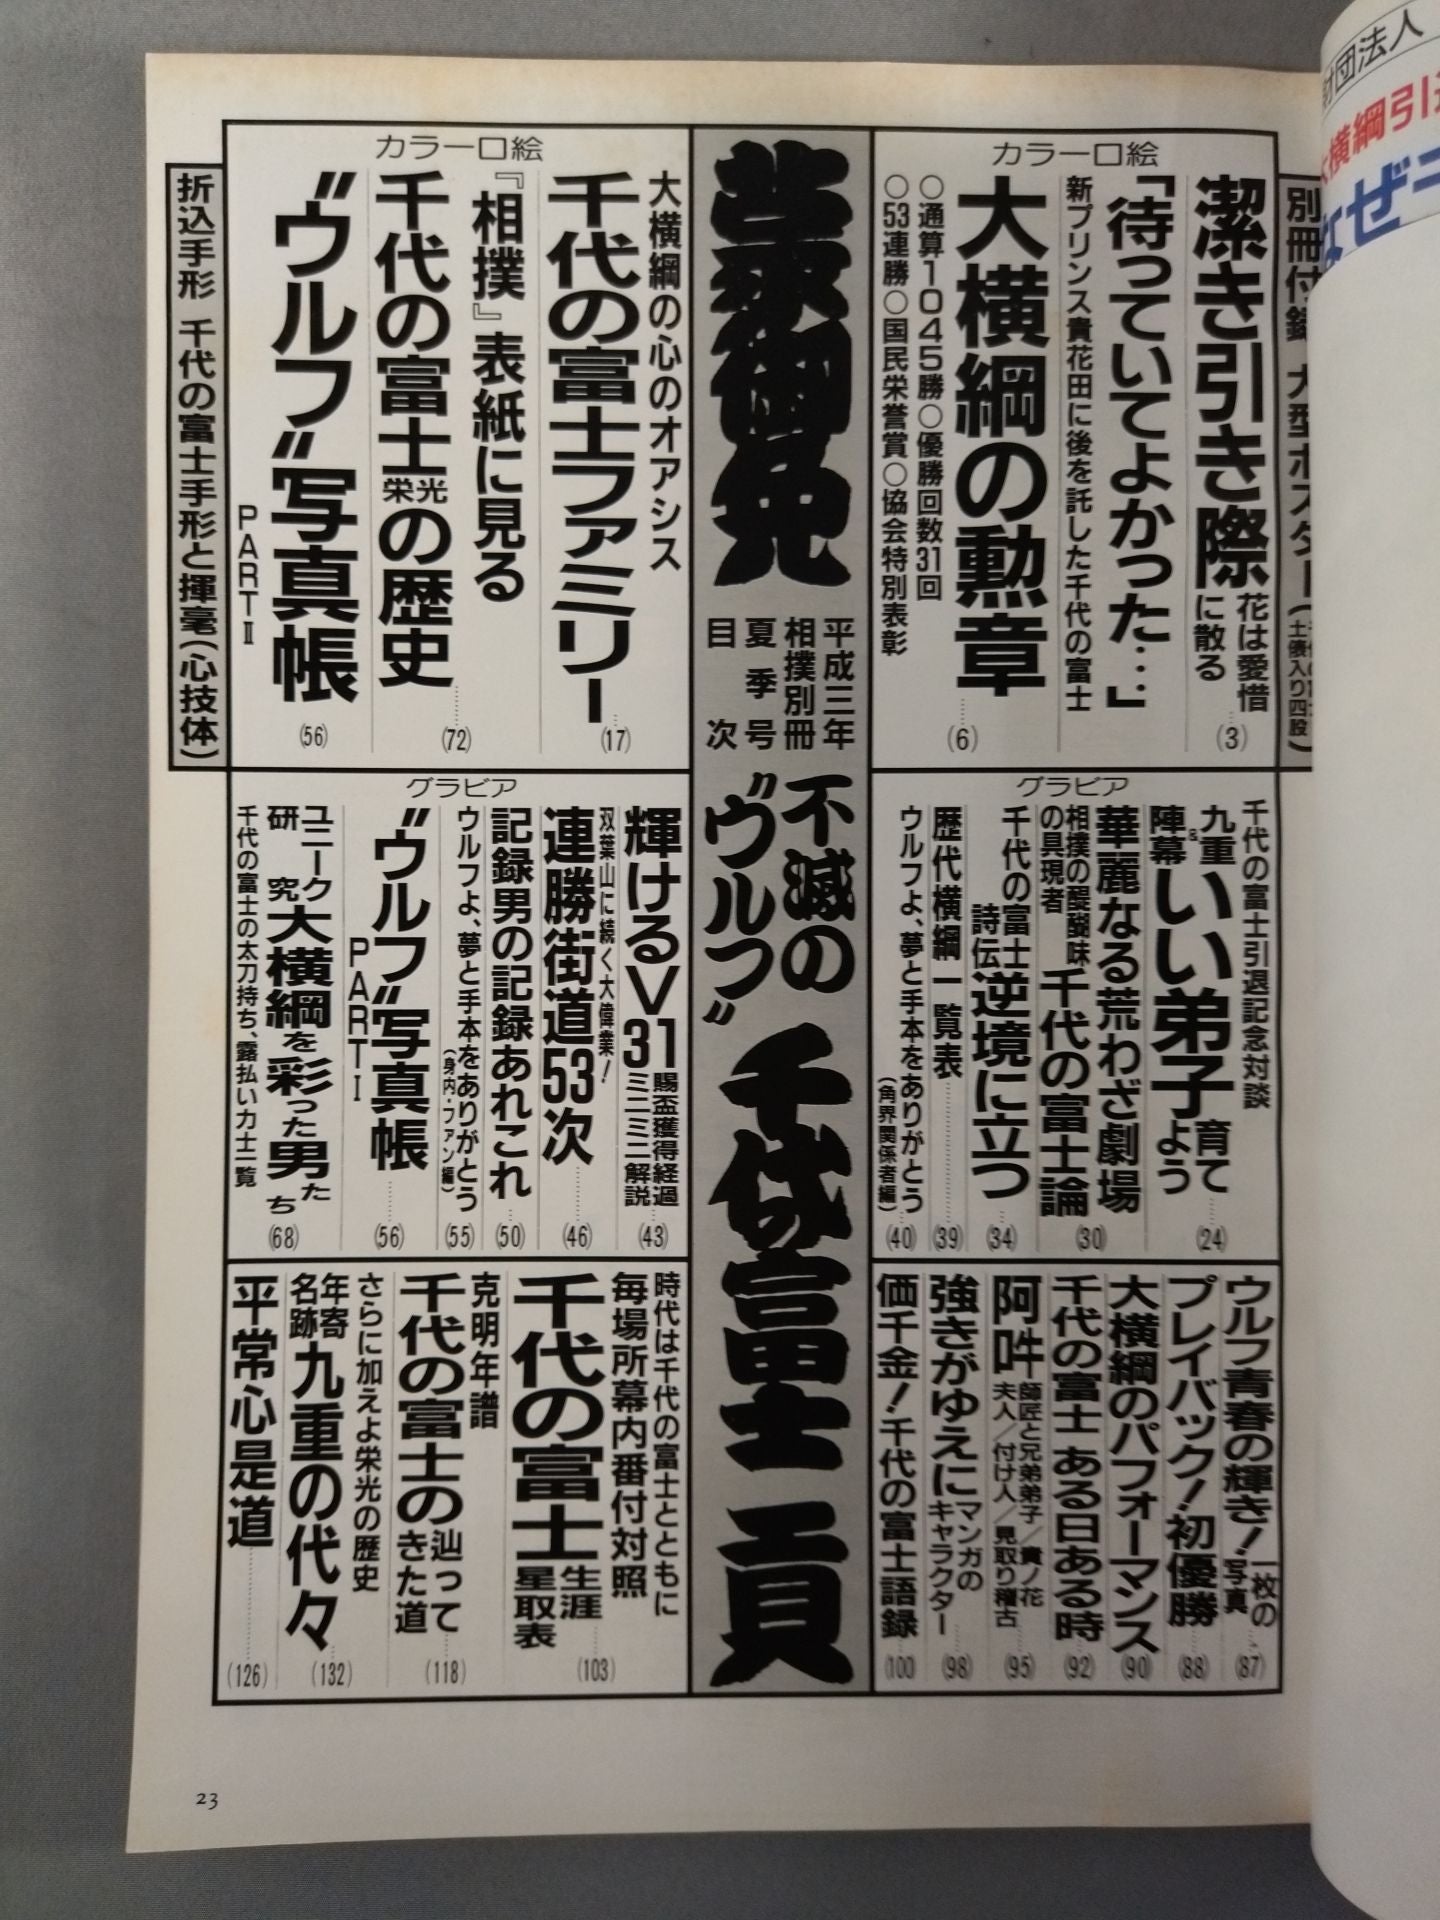 財団法人
大横綱引
なぜ千
別冊付録 大型ポスター
土俵入り四股
カラー口絵
潔き引き際
花は愛惜
に散る
(3)
「待っていてよかった…」
新プリンス貴花田に後を託した千代の富士
大横綱の勲章
(6)
○通算1045勝○優勝回数31回
○53連勝○国民栄誉賞○協会特別表彰
蒙御免
平成三年
相撲別冊
夏季号
目次
不滅の
“ウルフ”
千代の富士貢
カラー口絵
大横綱の心のオアシス
千代の富士ファミリー
(17)
『相撲』表紙に見る
千代の富士栄光の歴史
(72)
“ウルフ”写真帳
PARTⅡ
(56)
折込手形 千代の富士手形と揮毫(心技体)
グラビア
千代の富士引退記念対談
九重&陣幕 いい弟子育てよう
(24)
華麗なる荒わざ劇場
相撲の醍醐味の具現者 千代の富士論
(30)
千代の富士詩伝 逆境に立つ
(34)
歴代横綱一覧表
(39)
ウルフよ、夢と手本をありがとう
(角界関係者編)
(40)
グラビア
輝けるV31
賜盃獲得経過
ミニミニ解説
(43)
双葉山に続く大偉業!
連勝街道53次
(46)
記録男の記録あれこれ
(50)
ウルフよ、夢と手本をありがとう
(身内・ファン編)
(55)
“ウルフ”写真帳
PARTⅠ
(56)
ユニーク研究 大横綱を彩った男たち
千代の富士の太刀持ち、露払い力士一覧
(68)
ウルフ青春の輝き!
一枚の写真
(87)
プレイバック!初優勝
(88)
大横綱のパフォーマンス
(90)
千代の富士 ある日ある時
(92)
阿吽
師匠と兄弟弟子/貴ノ花
夫人/付け人/見取り稽古
(95)
強きがゆえに
マンガのキャラクター
(98)
価千金!千代の富士語録
(100)
時代は千代の富士とともに
毎場所幕内番付対照
千代の富士
生涯星取表
(103)
克明年譜
千代の富士の辿ってきた道
(118)
さらに加えよ栄光の歴史
年寄名跡 九重の代々
(132)
平常心是道
(126)
23